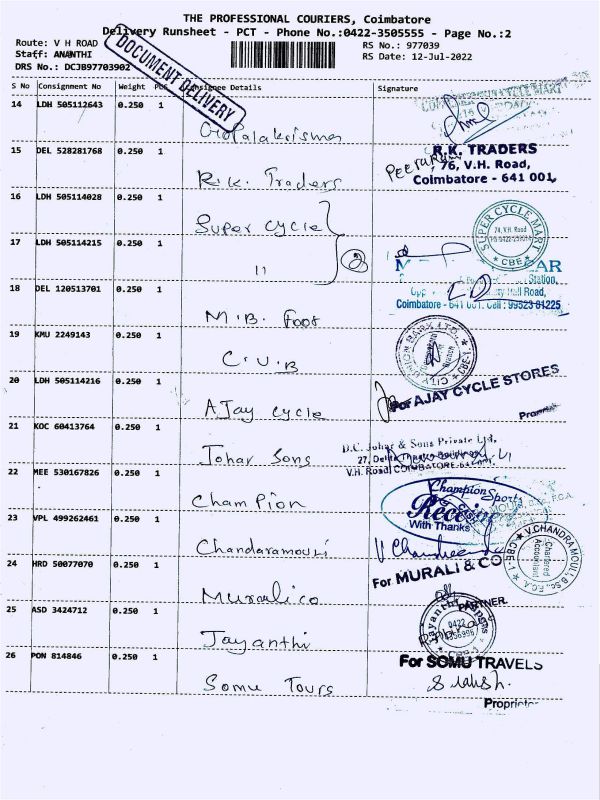 THE PROFESSIONAL COURIERS, Coimbatore
Delivery Runsheet - PCT - Phone No.:0422-3505555 - Page No.:2
Route: V H ROAD
Staff: ANANTHI
DRS No.: DCJB97703902
RS No.: 977039
RS Date: 12-Jul-2022
DOCUMENT DELIVERY
S No Consignment No Weight PCS Consignee Details Signature
14 LDH 505112643 0.250 1 Gopalakrisman
15 DEL 528281768 0.250 1 R.K. Traders
R.K. TRADERS
76, V.H. Road,
Coimbatore - 641 001.
16 LDH 505114028 0.250 1 Super cycle
SUPER CYCLE MART
74, V.H. Road
CBE-1
17 LDH 505114215 0.250 1 11
2
18 DEL 120513701 0.250 1 M.B. Foot
Station,
Hall Road,
Coimbatore - 641 001. Cell : 99523 61225
19 KMU 2249143 0.250 1 C.U.B
CITY UNION BANK LTD.,
CBE-1
20 LDH 505114216 0.250 1 AJay cycle
For AJAY CYCLE STORES
21 KOC 60413764 0.250 1 Johar Sons
D.C. Johar & Sons Private Ltd,
V.H. Road, COIMBATORE
22 MEE 530167826 0.250 1 Champion
Champion Sports
Received
With Thanks
CASH
23 VPL 499262461 0.250 1 Chandaramouri
V.CHANDRA MOULI, B.Sc., F.C.A.
Chartered
Accountant
CBE-1
24 HRD 50077070 0.250 1 Muralico
For MURALI & CO
PARTNER.
25 ASD 3424712 0.250 1 Jayanthi
Jayanthi
0422
CBE-1
26 PON 814846 0.250 1 Somu Tours
For SOMU TRAVELS
Proprietor